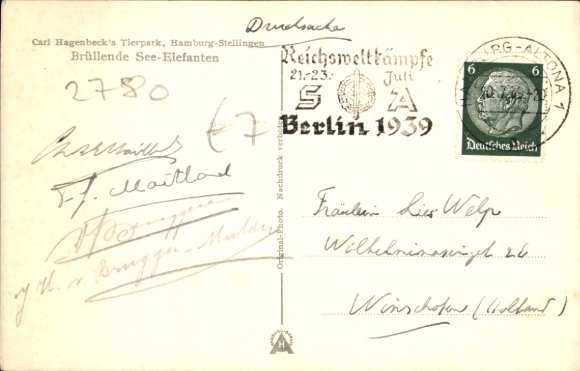 Drucksache
Carl Hagenbeck's Tierpark, Hamburg-Stellingen
Brüllende See-Elefanten
2780
€7
Reichswettkämpfe
21.-23. Juli
S A
Berlin 1939
BURG-ALTONA 1
6 6
Deutsches Reich
F. J. Maitland
v Bruggen
v Bruggen-Mulder
Original-Photo. Nachdruck verboten
Fräulein Lies Welp
Wilhelminasingel 26
Winschoten (Holland)